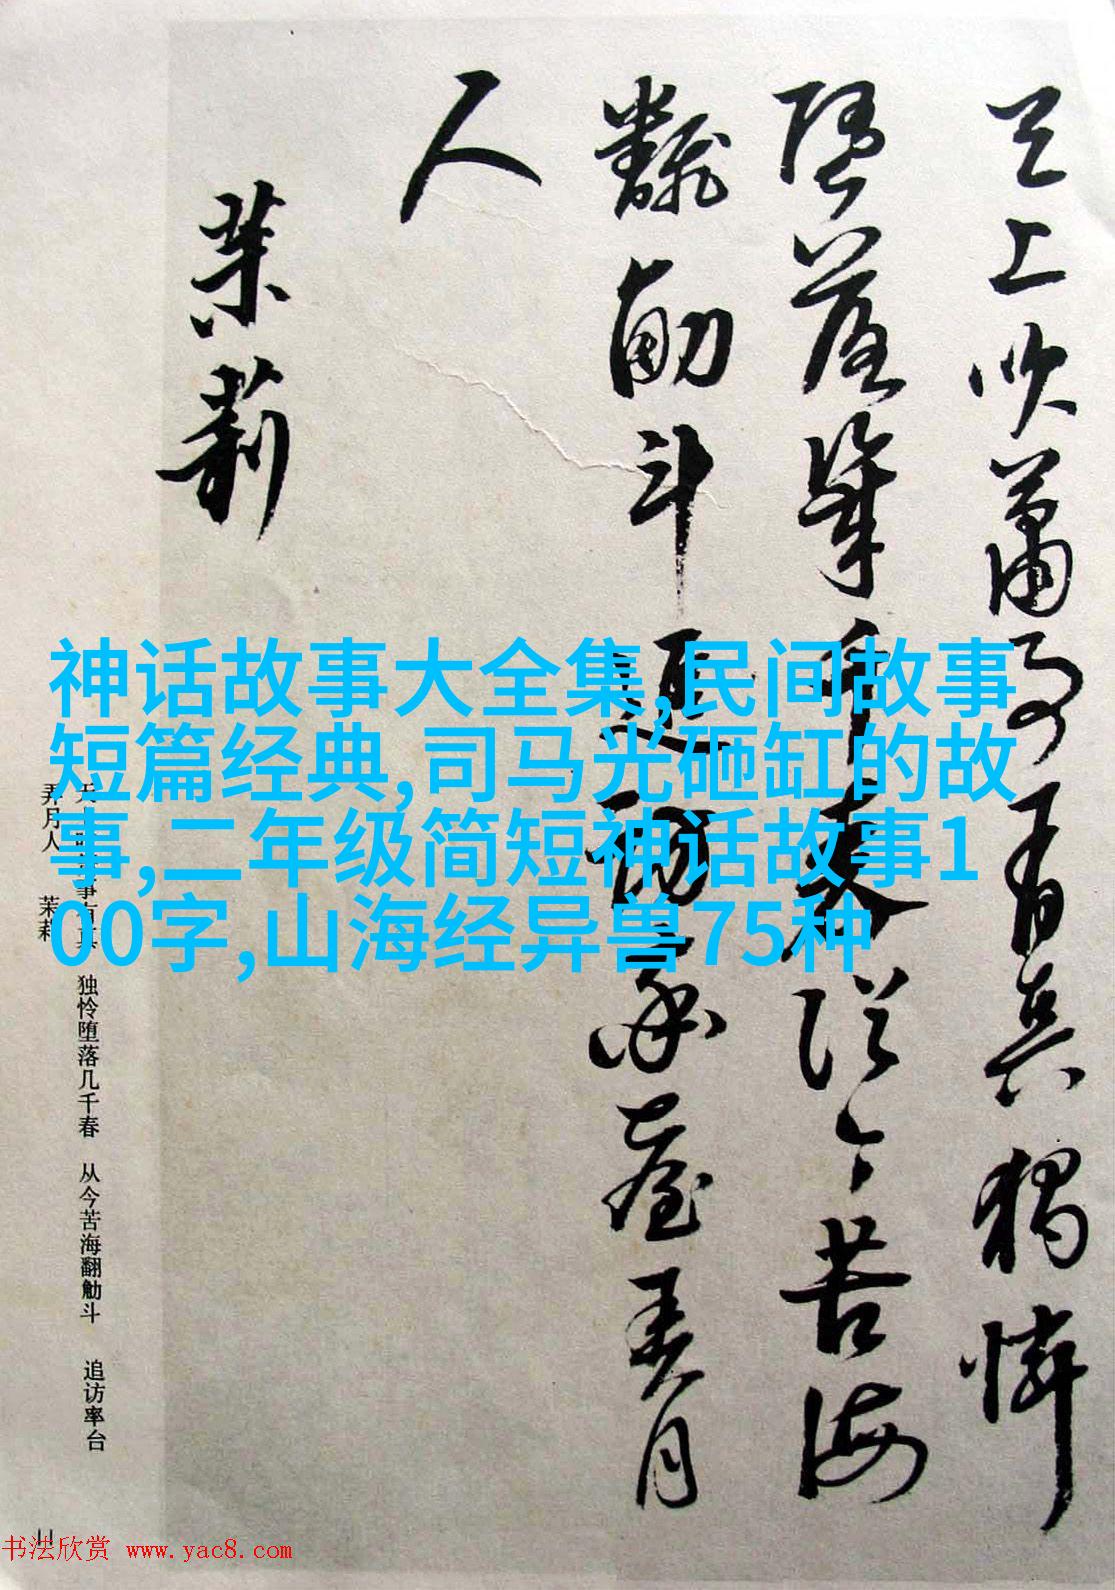 天上吹蕭事有真獨憐
墮落幾千春從今苦海
飜觔斗追訪臺弄月
人
茉莉
神话故事大全集,民间故事
短篇经典,司马光砸缸的故
事,二年级简短神话故事1
00字,山海经异兽75种
天事有真 独怜堕落几千春 从今苦海翻觔斗 追访率台
弄月人 茉莉
11
书法欣赏 www.yac8.com